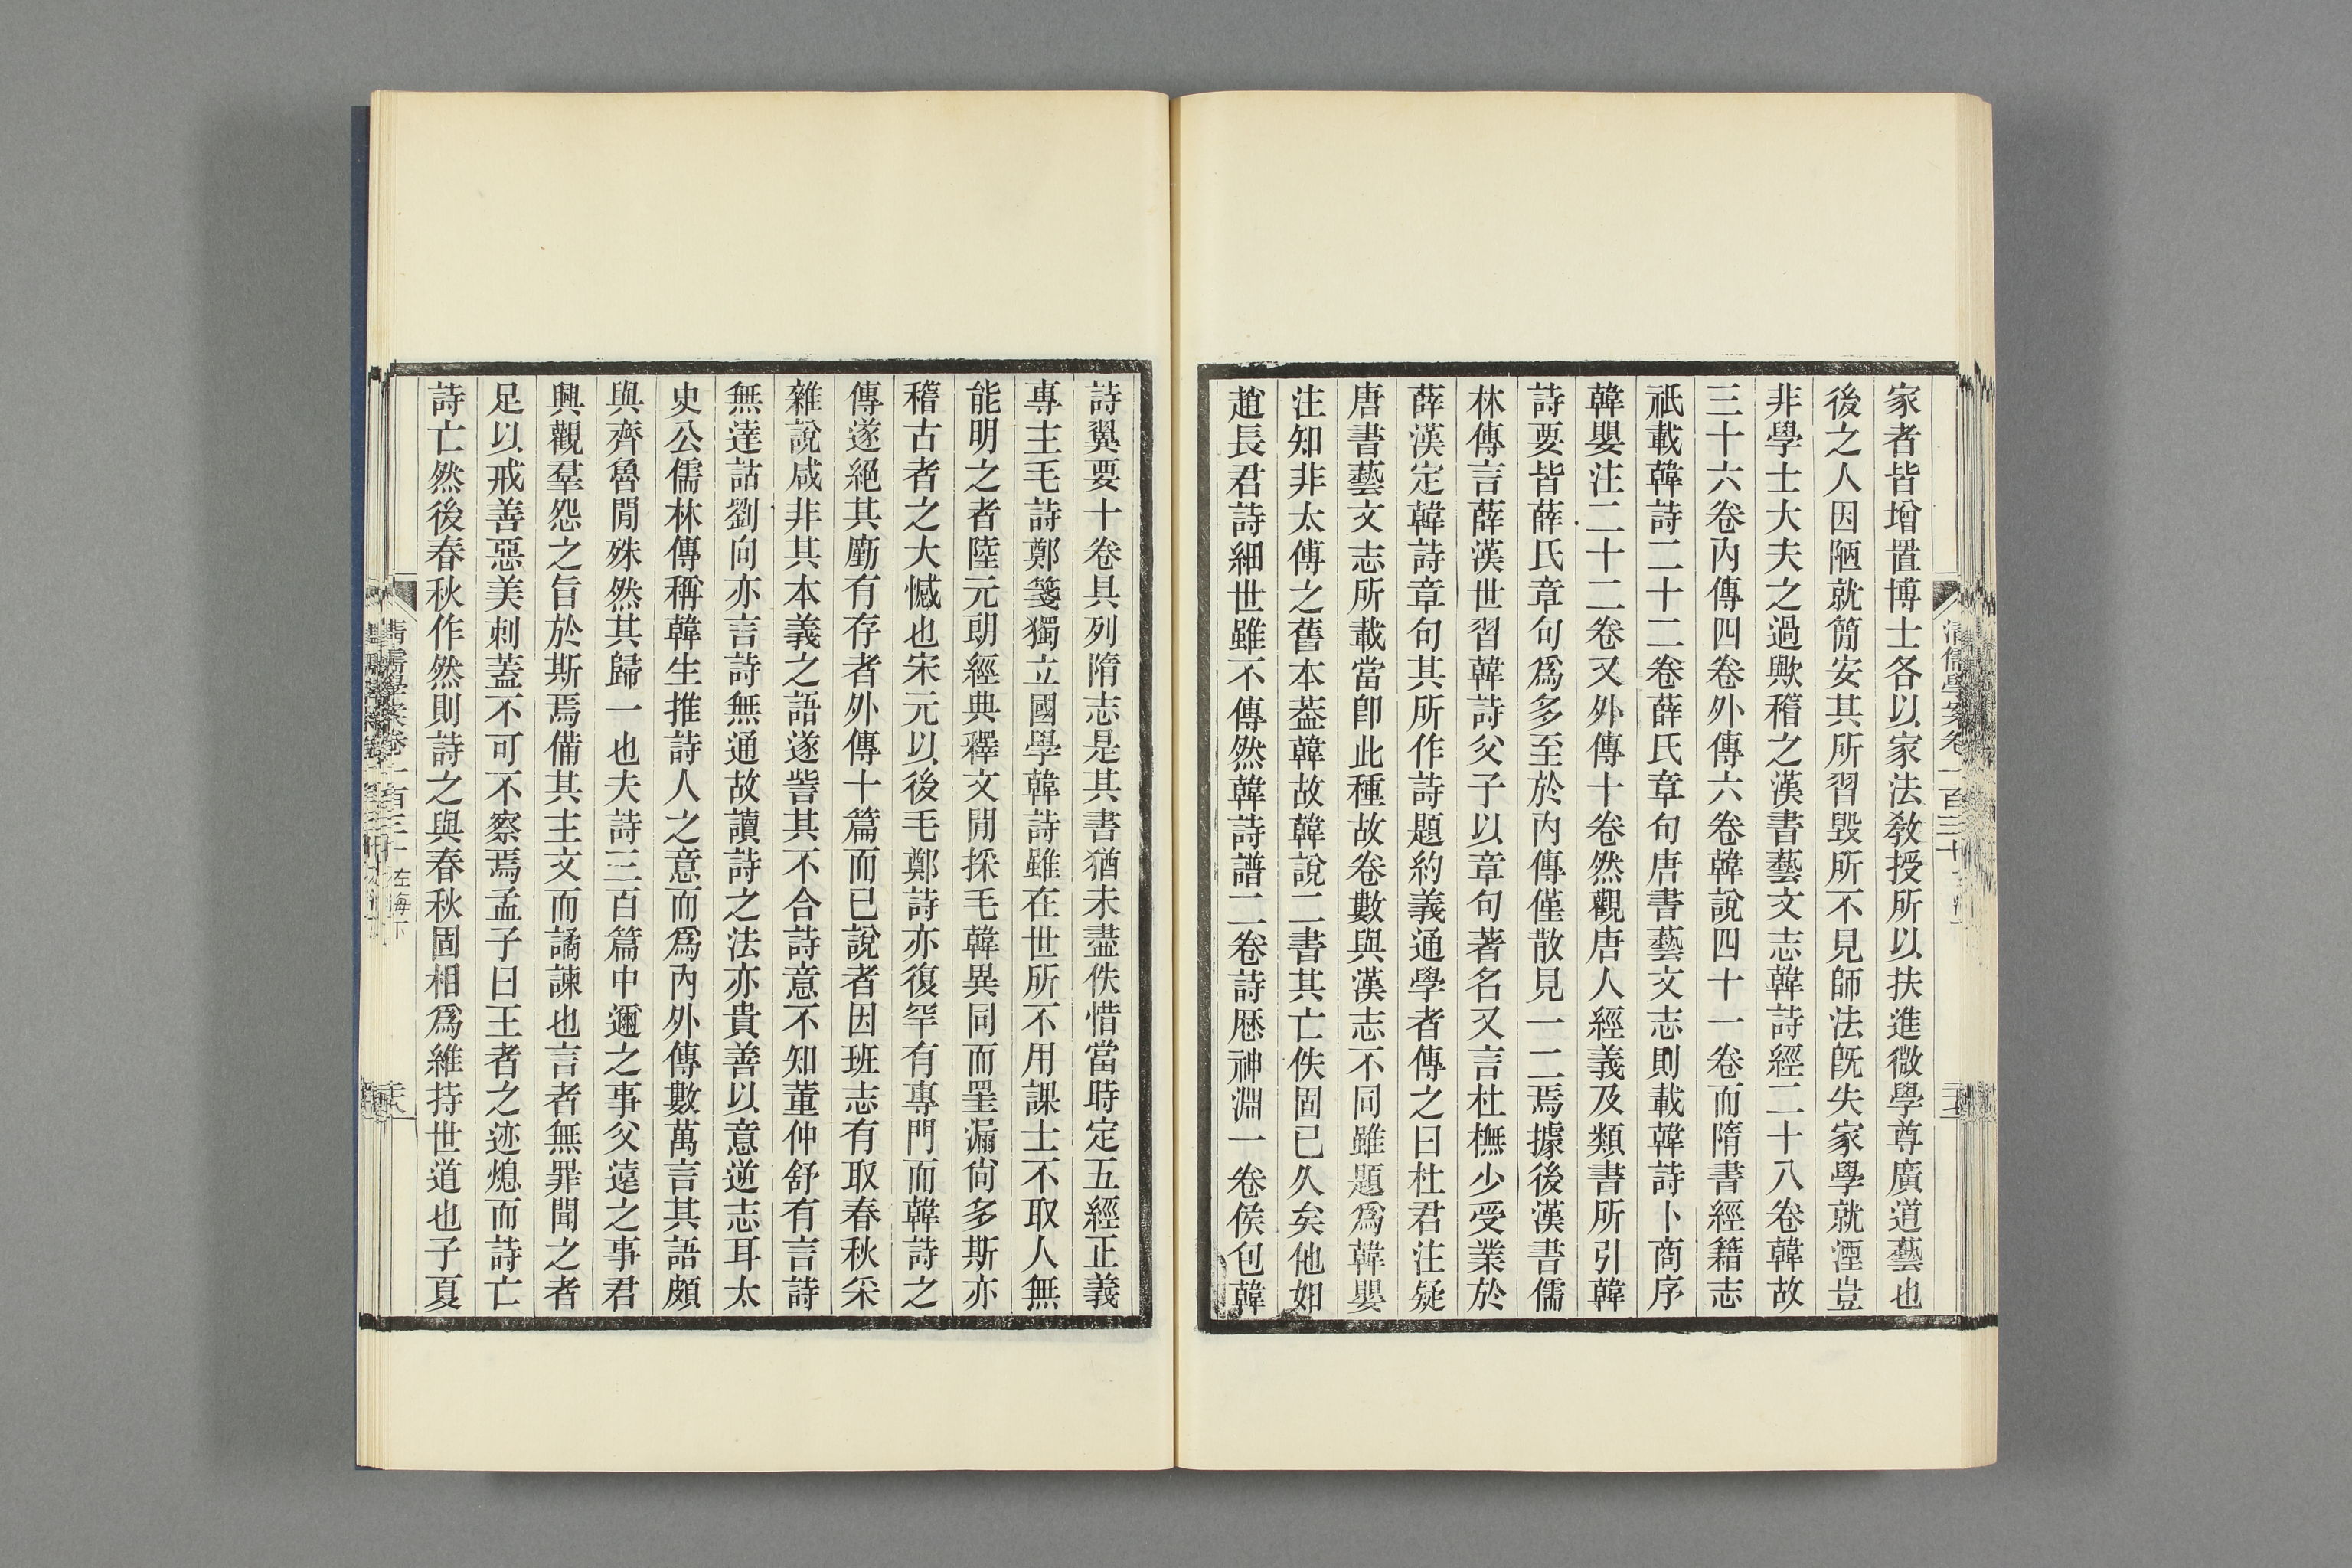 家者皆增置博士各以家法教授所以扶進微學尊廣道藝也
後之人因陋就簡安其所習毀所不見師法旣失家學就湮豈
非學士大夫之過歟稽之漢書藝文志韓詩經二十八卷韓故
三十六卷內傳四卷外傳六卷韓說四十一卷而隋書經籍志
祇載韓詩二十二卷薛氏章句唐書藝文志則載韓詩卜商序
韓嬰注二十二卷又外傳十卷然觀唐人經義及類書所引韓
詩要皆薛氏章句爲多至於內傳僅散見一二焉據後漢書儒
林傳言薛漢世習韓詩父子以章句著名又言杜橅少受業於
薛漢定韓詩章句其所作詩題約義通學者傳之曰杜君注疑
唐書藝文志所載當卽此種故卷數與漢志不同雖題爲韓嬰
注知非太傅之舊本葢韓故韓說二書其亡佚固已久矣他如
趙長君詩細世雖不傳然韓詩譜二卷詩厯神淵一卷侯包韓
詩翼要十卷具列隋志是其書猶未盡佚惜當時定五經正義
專主毛詩鄭箋獨立國學韓詩雖在世所不用課士不取人無
能明之者陸元朗經典釋文閒採毛韓異同而罣漏尙多斯亦
稽古者之大憾也宋元以後毛鄭詩亦復罕有專門而韓詩之
傳遂絕其廬有存者外傳十篇而已說者因班志有取春秋采
雜說咸非其本義之語遂訾其不合詩意不知董仲舒有言詩
無達詁劉向亦言詩無通故讀詩之法亦貴善以意逆志耳太
史公儒林傳稱韓生推詩人之意而爲內外傳數萬言其語頗
與齊魯閒殊然其歸一也夫詩三百篇中邇之事父遠之事君
興觀羣怨之旨於斯焉備其主文而譎諫也言者無罪聞之者
足以戒善惡美刺蓋不可不察焉孟子曰王者之迹熄而詩亡
詩亡然後春秋作然則詩之與春秋固相爲維持世道也子夏